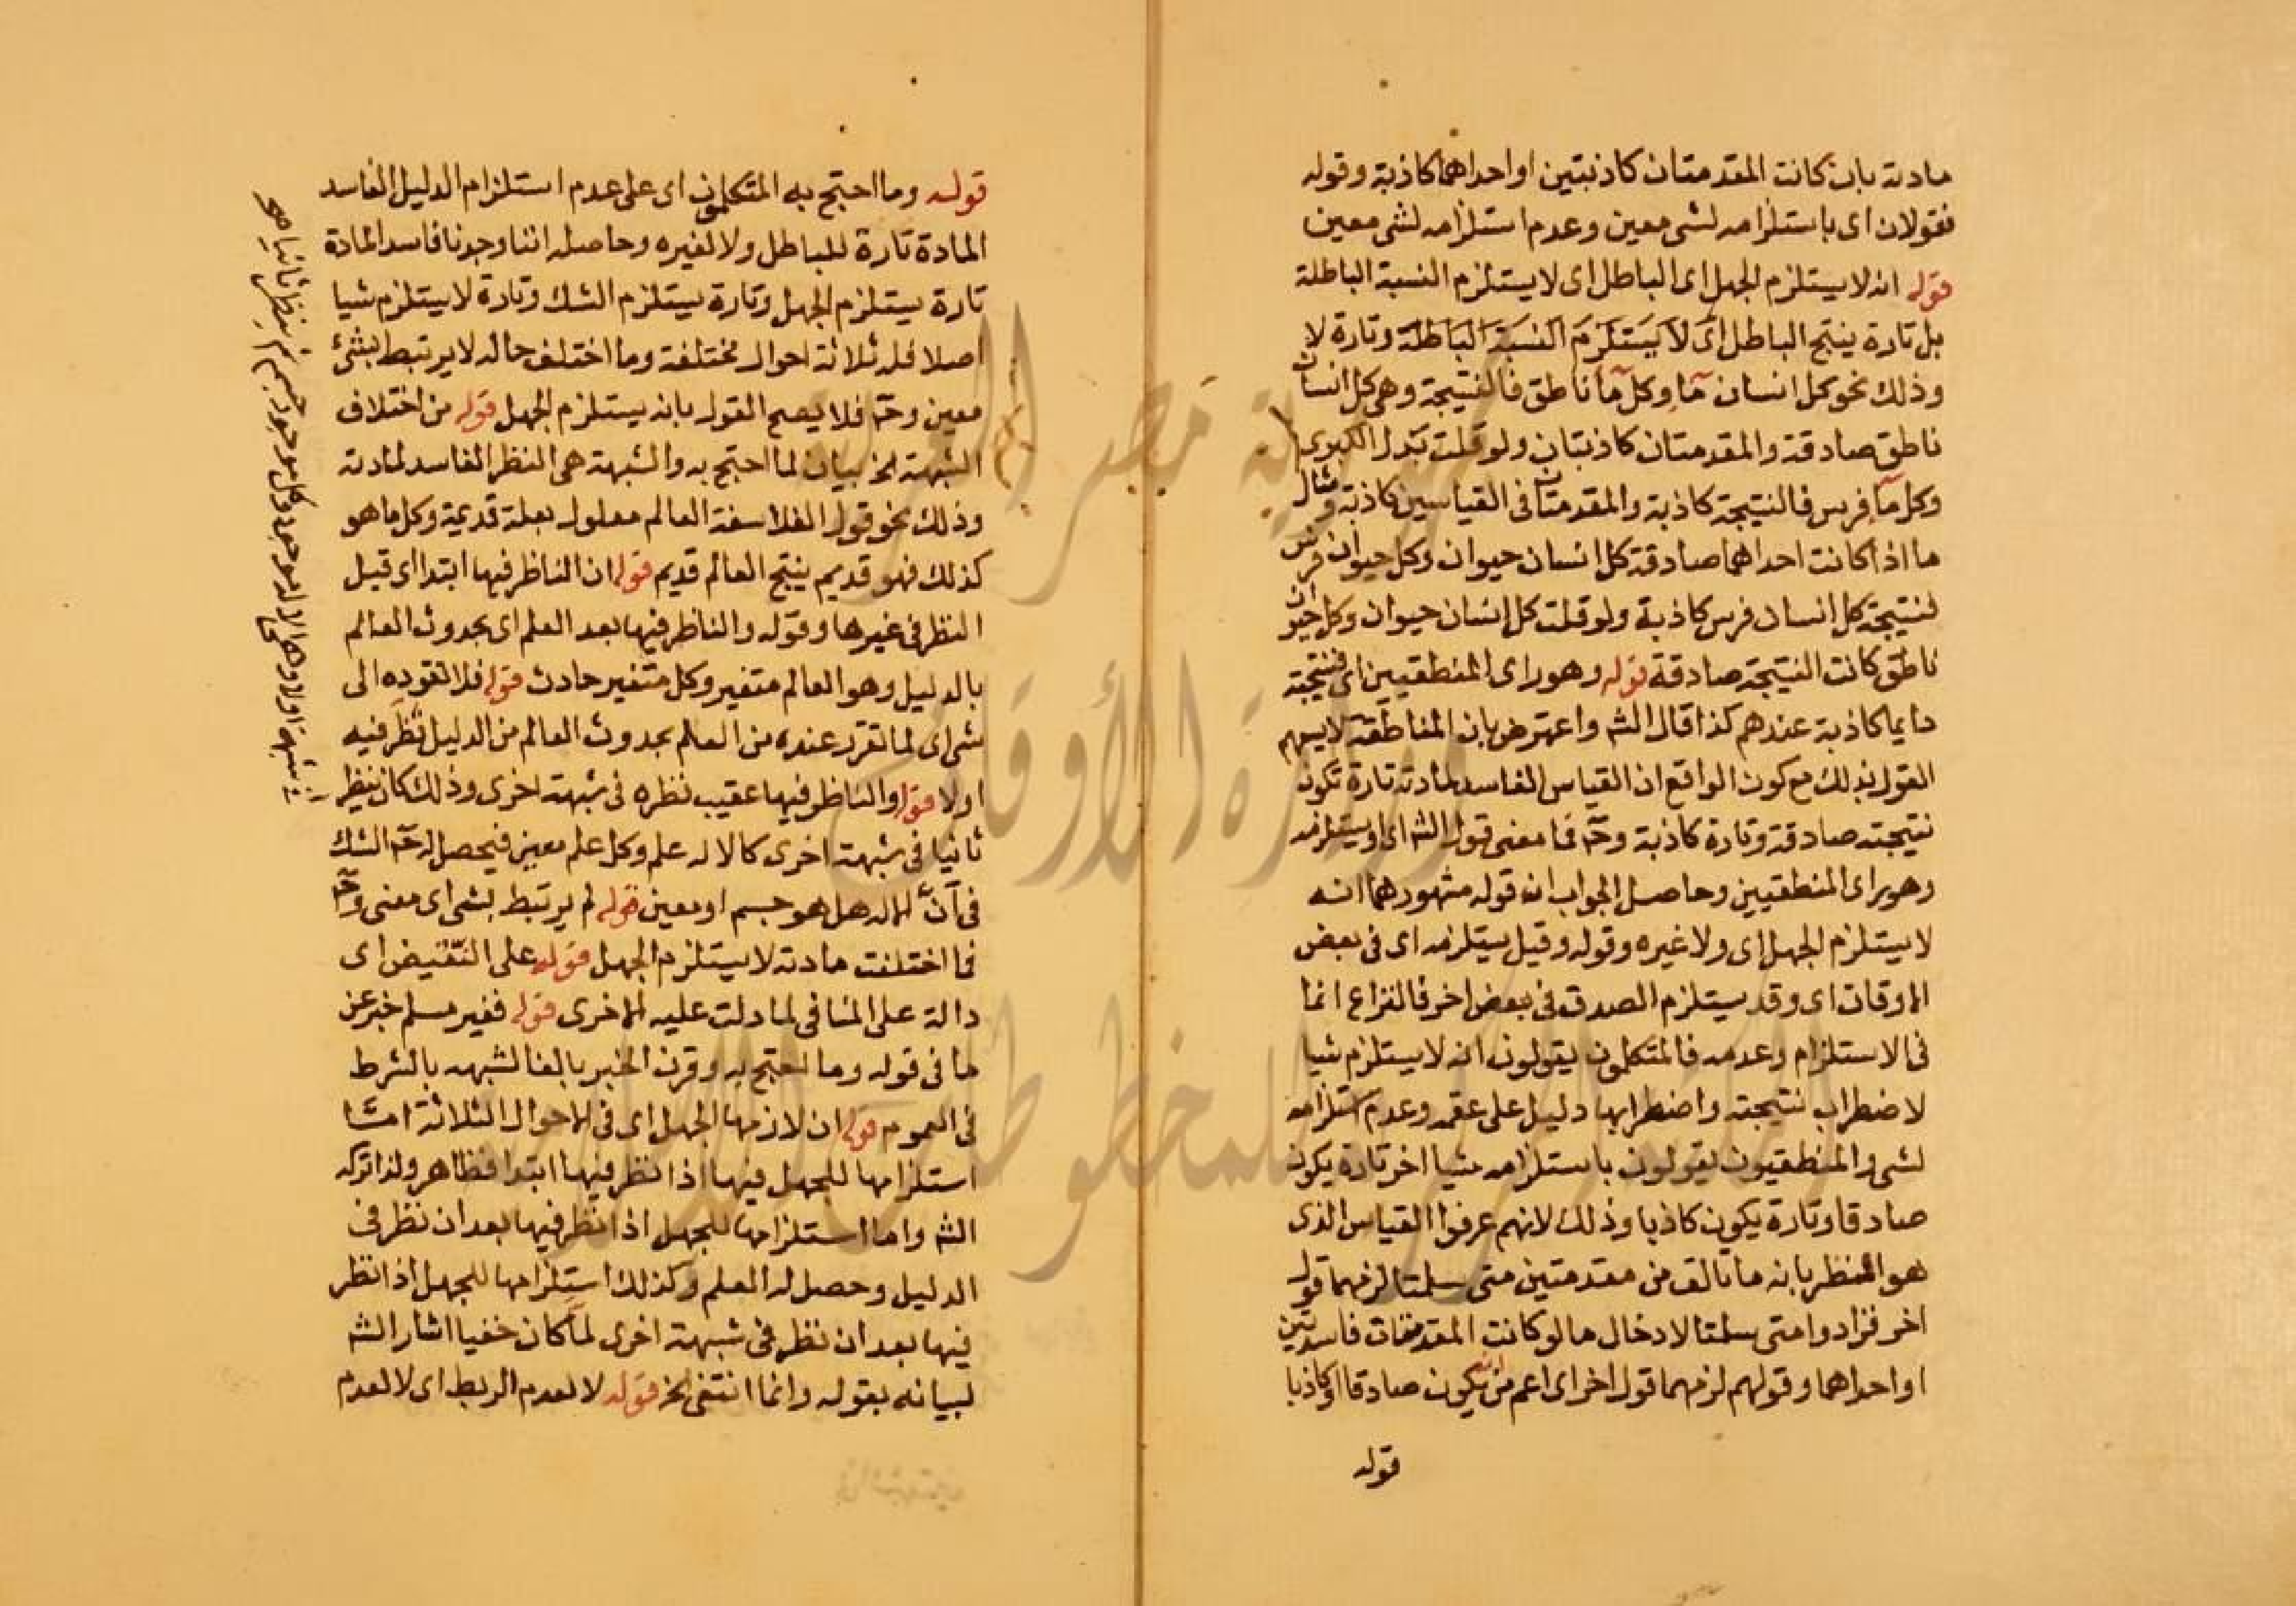 مادته بان كانت المقدمتان كاذبتين او احداهما كاذبة وقوله
فقولان اى باستلزامه لشى معين وعدم استلزامه لشى معين
قوله انه لا يستلزم الجهل اى الباطل اى لا يستلزم النسبة الباطلة
بل تارة ينتج الباطل اى لا يستلزم النسبة الباطلة وتارة لا
وذلك نحو كل انسان ماء وكل ماء ناطق فالنتيجة وهى كل انسان
ناطق صادقة والمقدمتان كاذبتان ولو قلت بدل الكبرى
وكل ماء فرس فالنتيجة كاذبة والمقدمتان فى القياسين كاذبة ومثال
ما اذا كانت احداهما صادقة كل انسان حيوان وكل حيوان فرس
لنتيجة كل انسان فرس كاذبة ولو قلت كل انسان حيوان وكل حيوان
ناطق كانت النتيجة صادقة قوله وهو راى المنطقيين اى فنتيجته
دايما كاذبة عندهم كذا قال الشه واعترض بان المناطقة لا يسعهم
القول بذلك مع كون الواقع ان القياس الفاسد لمادته تارة تكون
نتيجته صادقة وتارة كاذبة وحـ فما معنى قول الشه اى او يستلزمه
وهو راى المنطقيين وحاصل الجواب ان قوله مشهورهما انه
لا يستلزم الجهل اى ولا غيره وقوله وقيل يستلزمه اى فى بعض
الاوقات اى وقد يستلزم الصدق فى بعض اخر فالنزاع انما
فى الاستلزام وعدمه فالمتكلمون يقولون انه لا يستلزم شيا
لاضطراب نتيجته واضطرابها دليل على عقمه وعدم استلزامه
لشى والمنطقيون يقولون باستلزامه شيا اخر تارة يكون
صادقا وتارة يكون كاذبا وذلك لانهم عرفوا القياس الذى
هو النظر بانه ما تالف من مقدمتين متى سلمتا لزمهما قول
اخر فزادوا متى سلمتا لادخال ما لو كانت المقدمتان فاسدتين
او احداهما وقولهم لزمهما قول اخر اى اعم من انه يكون صادقا او كاذبا
قوله
قوله وما احتج به المتكلمون اى على عدم استلزام الدليل الفاسد
المادة تارة للباطل ولا لغيره وحاصله اننا وجدنا فاسد المادة
تارة يستلزم الجهل وتارة يستلزم الشك وتارة لا يستلزم شيا
اصلا فله ثلاثة احوال مختلفة وما اختلف حاله لا يرتبط بشئ
معين وحـ فلا يصح القول بانه يستلزم الجهل قوله من اختلاف
الشبهة الخ بيان لما احتج به والشبهة هى النظر الفاسد لمادته
وذلك نحو قول الفلاسفة العالم معلول بعلة قديمة وكل ما هو
كذلك فهو قديم ينتج العالم قديم قوله ان الناظر فيها ابتدا اى قبل
النظر فى غيرها وقوله والناظر فيها بعد العلم اى بحدوث العالم
بالدليل وهو العالم متغير وكل متغير حادث قوله فلا تقوده الى
شى اى لما تقرر عنده من العلم بحدوث العالم من الدليل نظر فيه
اولا قوله والناظر فيها عقيب نظره فى شبهة اخرى وذلك كان ينظر
ثانيا فى شبهة اخرى كالاله علم وكل علم معين فيحصل له حـ الشك
فى ان الاله هل هو جسم او معين قوله لم يرتبط بشى اى معنى وحـ
فما اختلفت مادته لا يستلزم الجهل قوله على النقيض اى
دالة على المنافى لما دلت عليه الاخرى قوله فغير مسلم خبر عن
ما فى قوله وما احتج به وقرن الخبر بالفا لشبهه بالشرط
فى العموم قوله ان لازمها الجهل اى فى الاحوال الثلاثة اما
استلزامها للجهل فيها اذا نظر فيها ابتدا فظاهر ولذا تركه
الشه واما استلزامها للجهل اذا نظر فيها بعد ان نظر فى
الدليل وحصل له العلم وكذلك استلزامها للجهل اذا نظر
فيها بعد ان نظر فى شبهة اخرى لما كان خفيا اشار الشه
لبيانه بقوله وانما انتفى الخ قوله لا لعدم الربط اى لا لعدم
جمهورية مصر العربية
وزارة الأوقاف